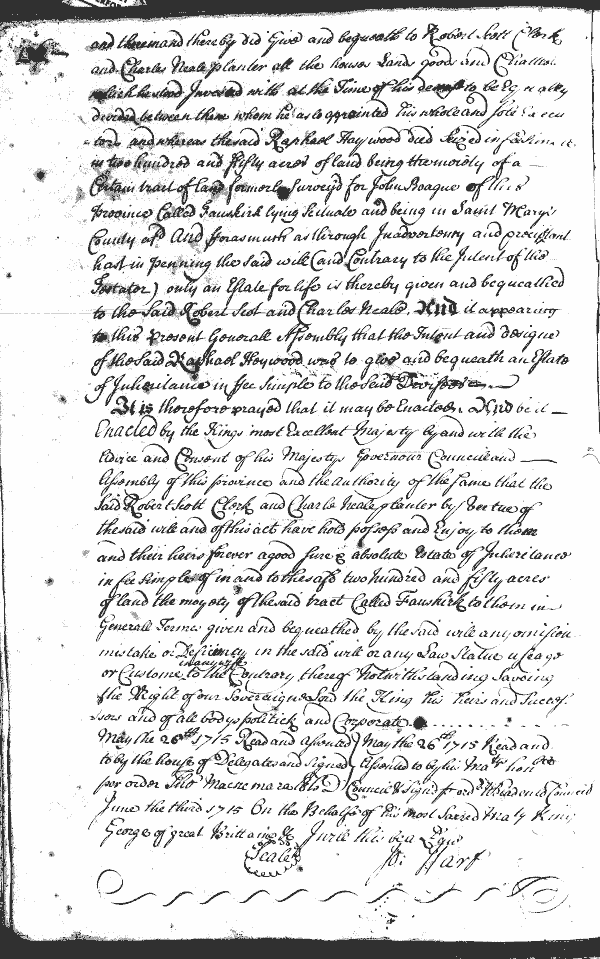 and thereand thereby did Give and bequeath to Robert Scott Clerk
and Charles Neale planter all the houses Lands goods and Chattles
which he stood Invested with at the Time of his demise to be Equally
divided between them whom he also appointed his whole and sole Execu
tors and whereas the said Raphael Haywood died Seized in
in two hundred and fifty acres of land being the moiety of a
Certain tract of land formerly Surveyd for John of this
province Called Fauskirk lying Scituate and being in Saint Marys
County afd And forasmuch as through Inadvertency and
hast in penning the said will (and Contrary to the Intent of the
Testator) only an Estate for life is thereby given and bequeathed
to the Said Robert Scot and Charles Neale And it appearing
to this present Generall Assembly that the Intent and designe
of the Said Raphael Heywood was to give and bequeath an Estate
of Inheritance in fee Simple to the Said Devisees
It is therefore prayed that it may be Enacted And be it
Enacted by the Kings most Excellent Majesty by and with the
Advice and Consent of his Majestys Governour Councill and
Assembly of this province and the authority of the same that the
Said Robert Scott Clerk and Charles Neale planter by Vertue of
the said will and of this act have hold possess and Enjoy to them
and their heirs forever a good sure & absolute Estate of Inheritance
in fee Simple of in and to the afd two hundred and fifty acres
of land the moyety of the said tract Called Fauskirk to them in
Generall Termes given and bequeathed by the said will any omission
mistake or Deficiency in the said will or any Law Statue useage
or Custome to the Contrary thereof in any wise Notwithstanding Saveing
the Right of our Sovereigne Lord the King his heirs and Succes
ssors and of all bodys politick and Corporate
May the 26th 1715 Read and Assented May the 26th 1715 Read and
to by the house of Delegates and Signed Assented to by his Maty honble
per order Tho Macnemara Councill & Signd pr ordr Councill
June the third 1715 On the Behalfe of his most Sacred Maty King
George of great Brittaine &c I will this be a
Seale Jo: Hart